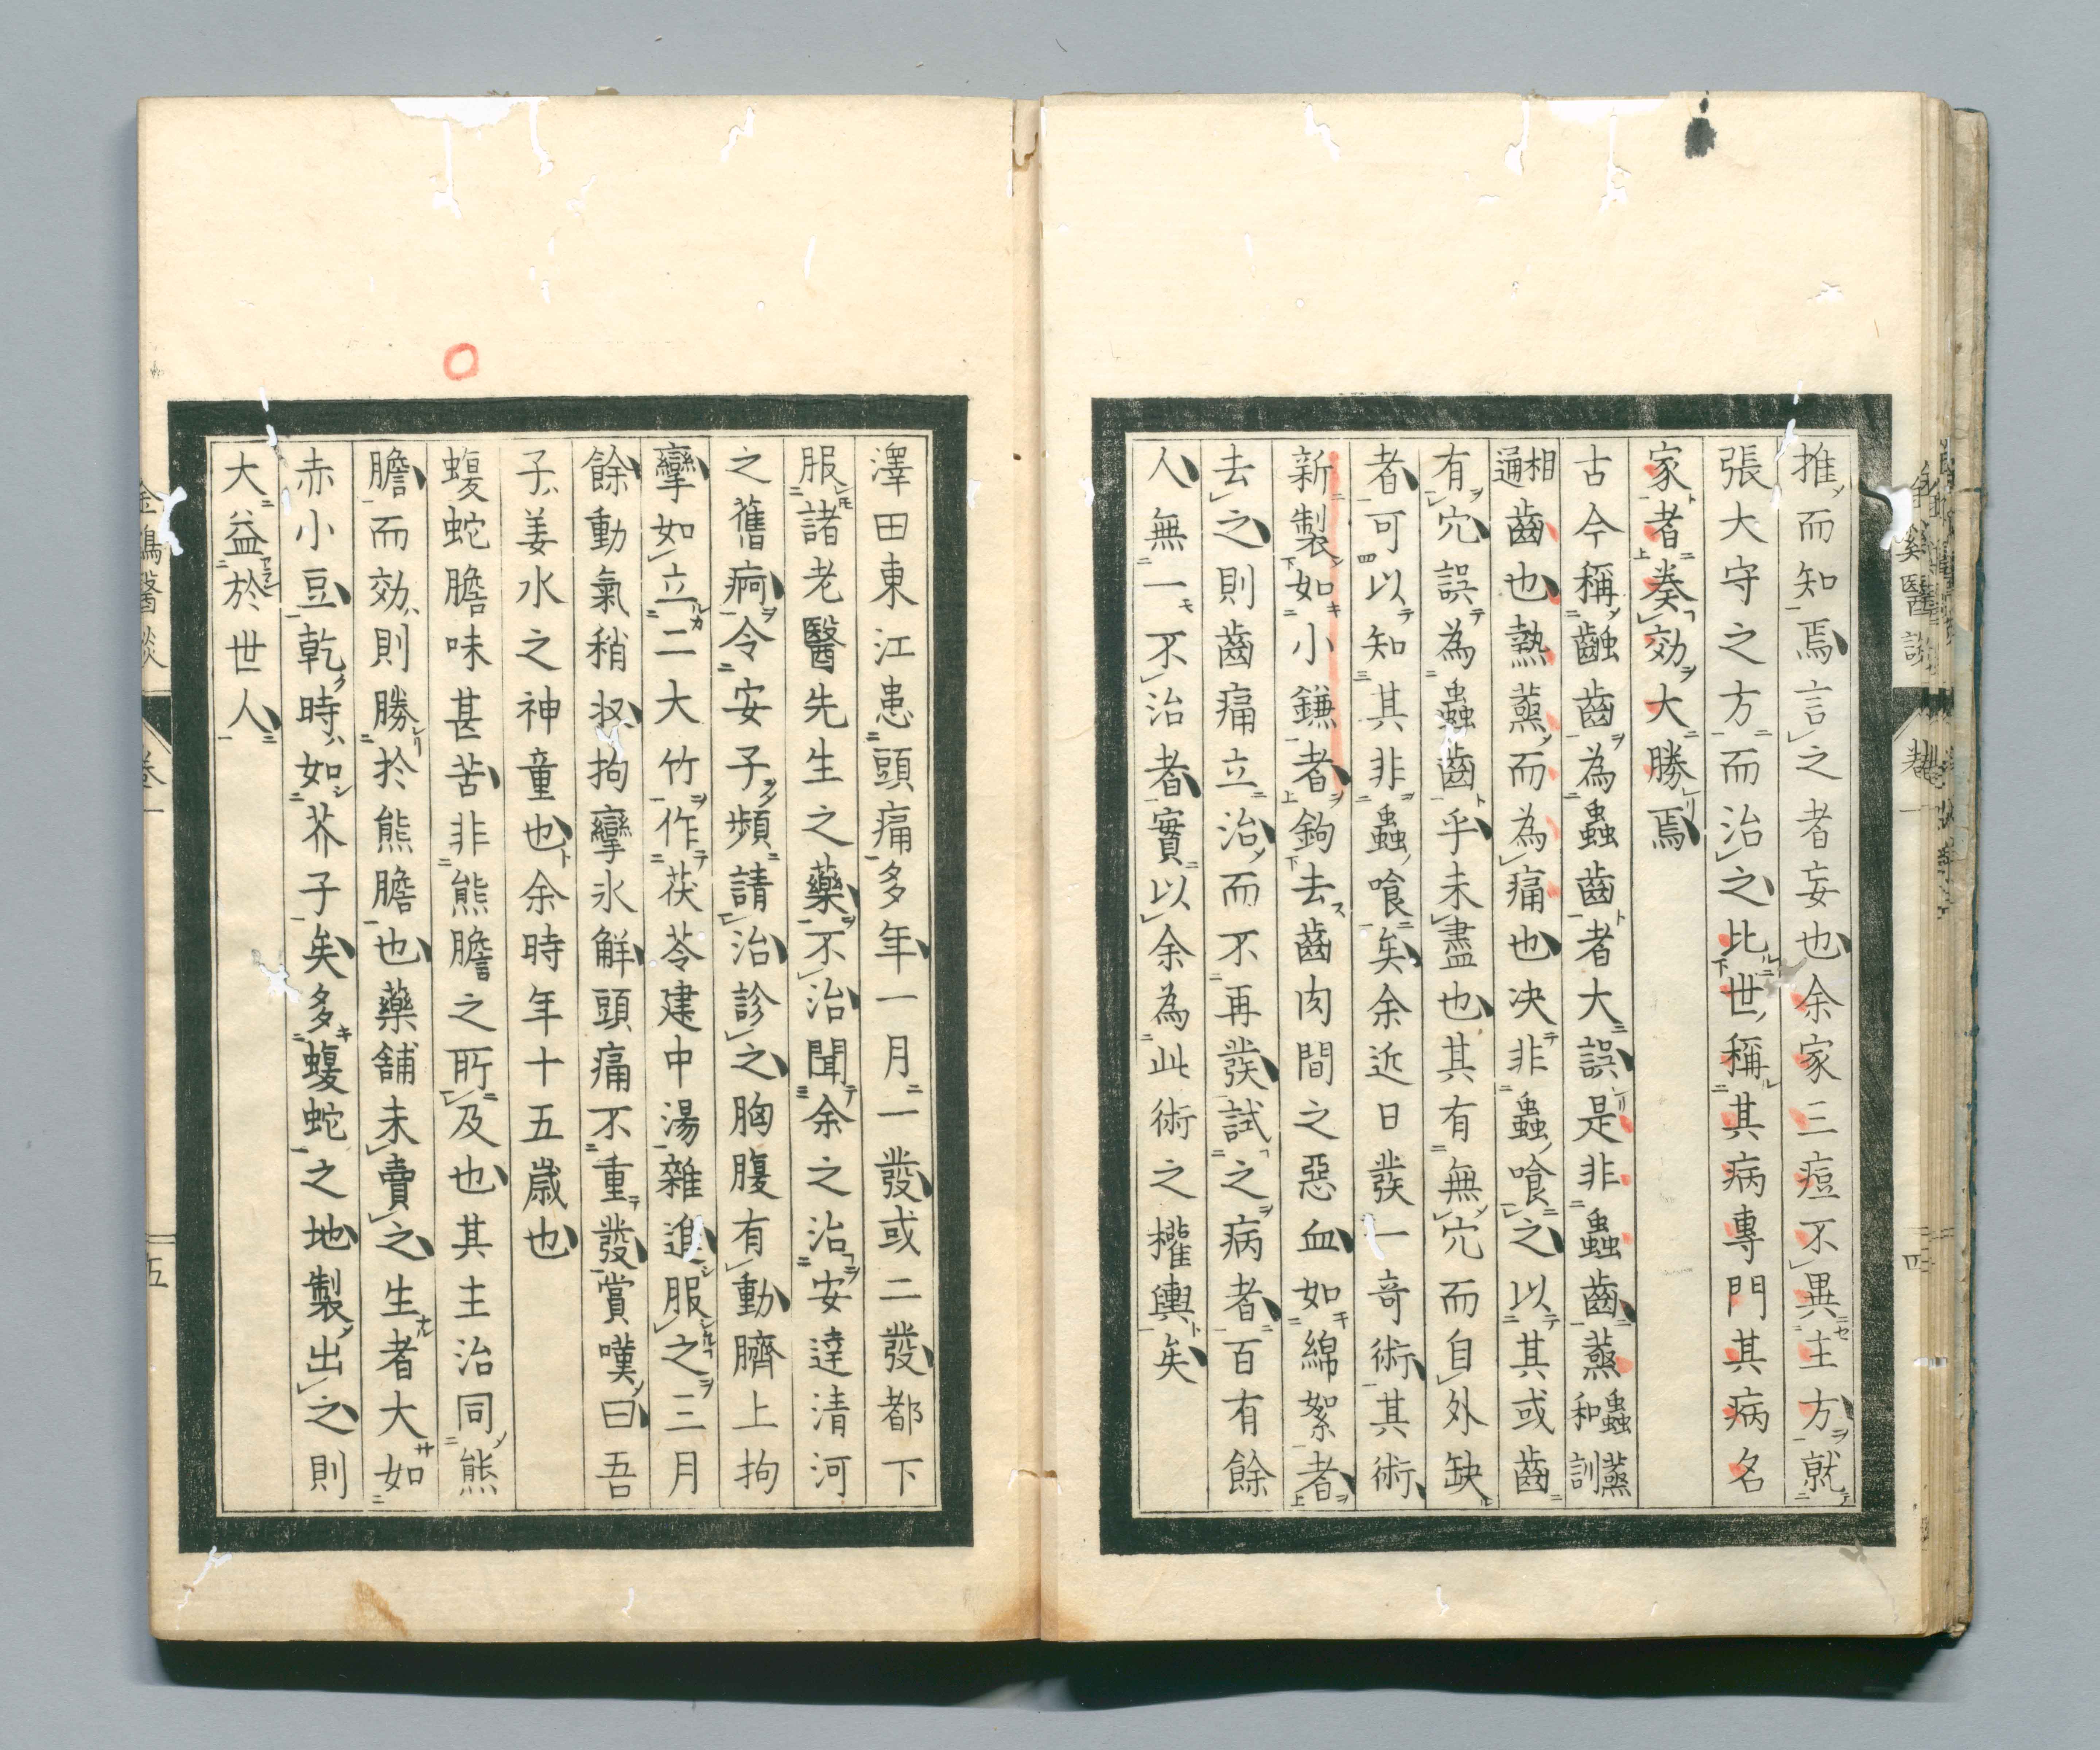 推而知焉言之者妄也余家三痘不異主方就
張大守之方而治之比世稱其病專門其病名
家者奏効大勝焉
古今稱齲齒為蟲齒者大誤是非蟲齒蒸蟲蒸和訓
相通齒也熱蒸而為痛也决非蟲喰之以其或齒
有穴誤為蟲齒乎未盡也其有無穴而自外缺
者可以知其非蟲喰矣余近日發一竒術其術
新製如小鎌者鉤去齒肉間之惡血如綿絮者
去之則齒痛立治而不再發試之病者百有餘
人無一不治者實以余為此術之權輿矣
澤田東江患頭痛多年一月一發或二發都下
服諸老醫先生之藥不治聞余之治安達清河
之舊痾令安子頻請治診之胸腹有動臍上拘
攣如立二大竹作茯苓建中湯雜進服之三月
餘動氣稍收拘攣氷解頭痛不重發賞嘆曰吾
子姜水之神童也余時年十五歲也
蝮蛇膽味甚苦非熊膽之所及也其主治同熊
膽而効則勝於熊膽也藥舖未賣之生者大如
赤小豆乾時如芥子矣多蝮蛇之地製出之則
大益於世人
卷一
五